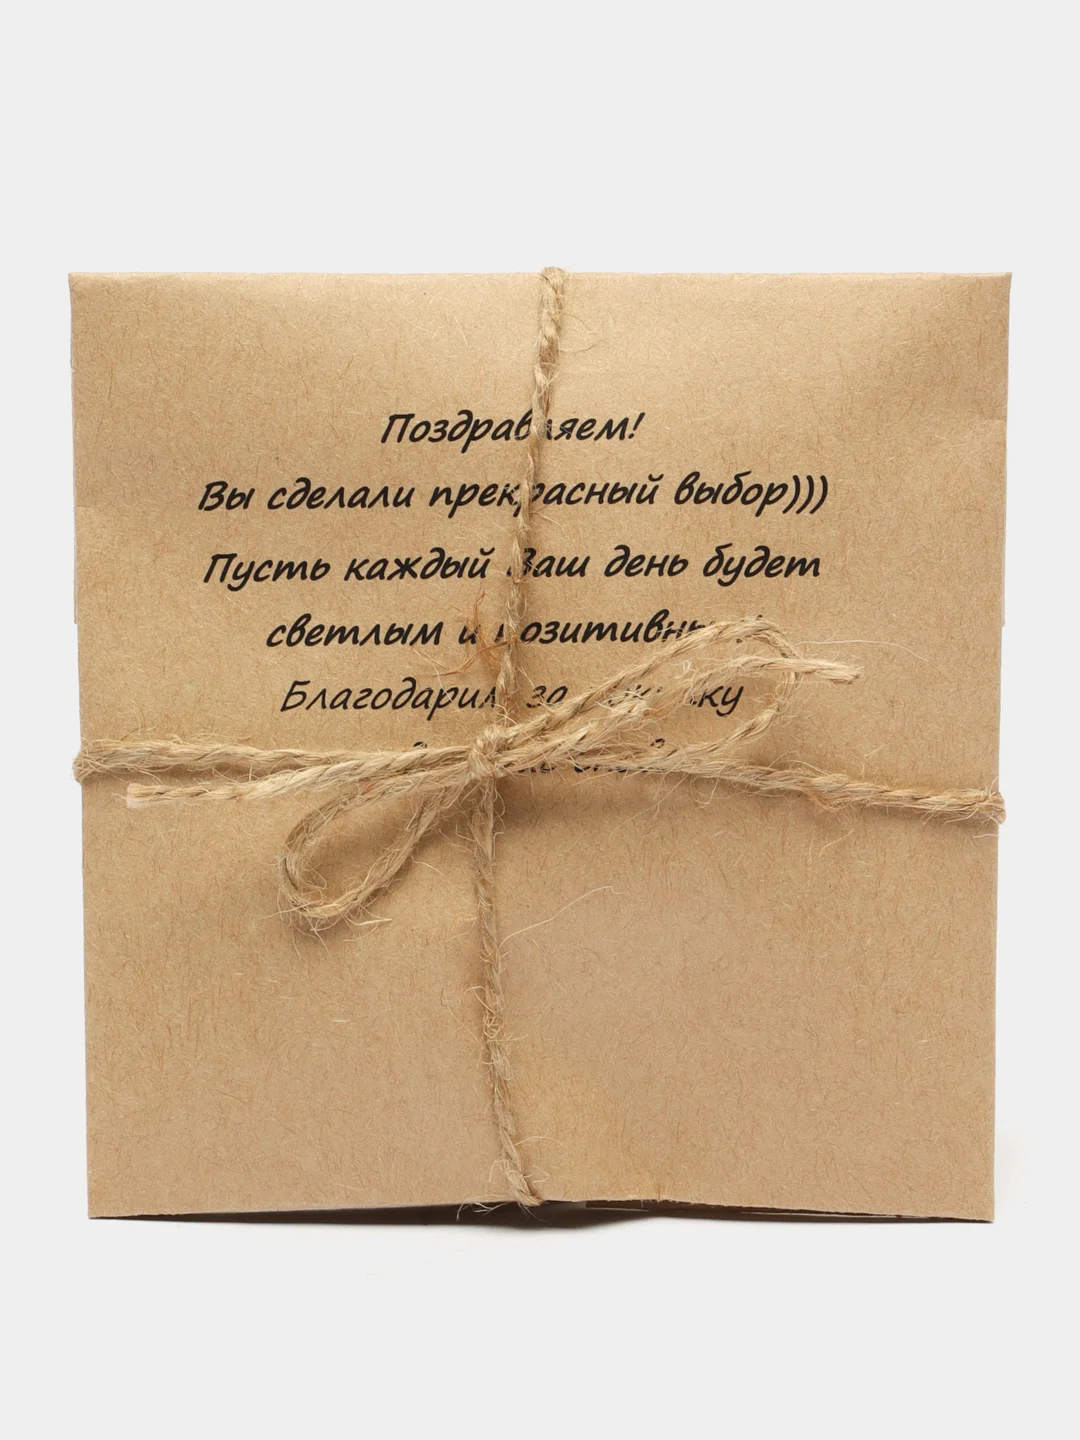 Поздравляем!
Вы сделали прекрасный выбор)))
Пусть каждый Ваш день будет
светлым и позитивным!
Благодарим за покупку